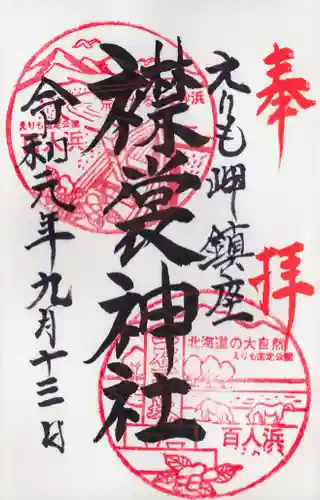 奉拝
えりも岬鎮座
襟裳神社
令和元年九月十三日
えりも国定公園
北海道の大自然
えりも国定公園
百人浜